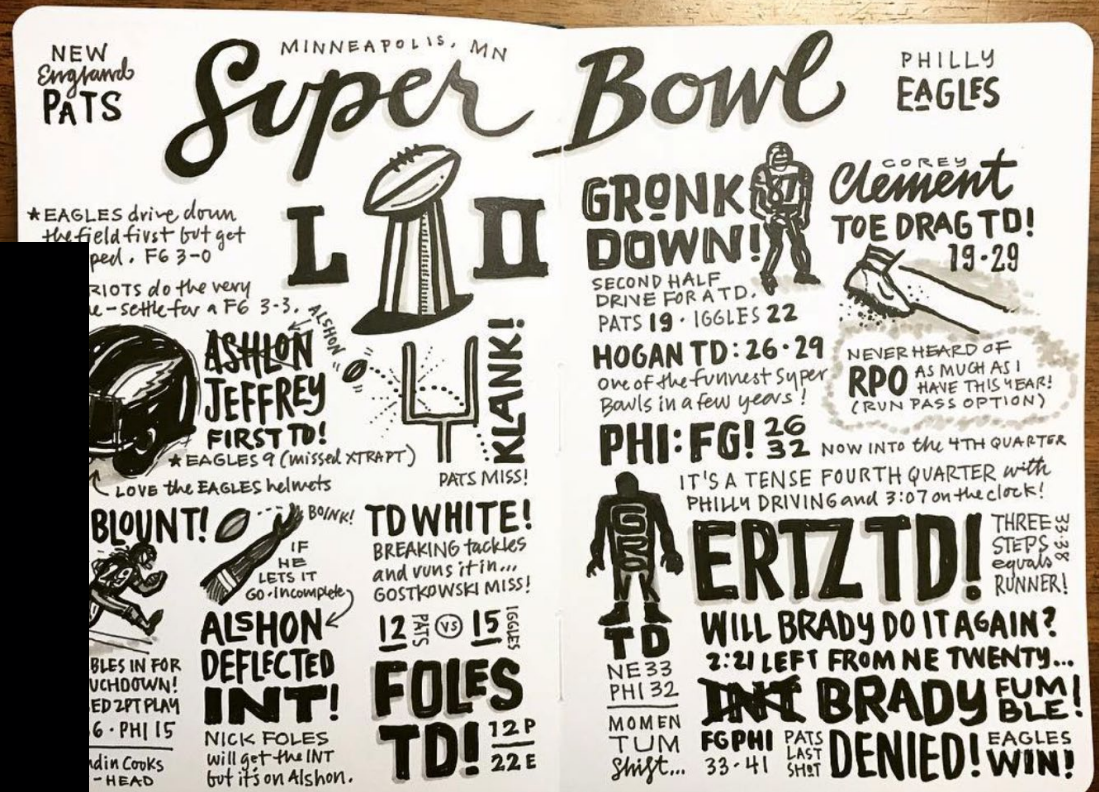 NEW
England
PATS
MINNEAPOLIS, MN
Super Bowl
PHILLY
EAGLES
L II
★EAGLES drive down
the field first but get
ped. FG 3-0
RIOTS do the very
e-settle for a FG 3-3.
ASHLON
ALSHON
JEFFREY
FIRST TD!
★EAGLES 9 (missed XTRAPT)
LOVE the EAGLES helmets
KLANK!
PATS MISS!
BLOUNT!
29
BLES IN FOR
UCHDOWN!
ED 2PT PLAY
6 · PHI 15
ndin Cooks
-HEAD
BOINK!
IF
HE
LETS IT
GO-incomplete
ALSHON
DEFLECTED
INT!
NICK FOLES
will get the INT
but it's on Alshon.
TD WHITE!
BREAKING tackles
and runs it in...
GOSTKOWSKI MISS!
12 PATS VS 15 IGGLES
FOLES
TD! 12P
22E
GRONK
DOWN!
87
SECOND HALF
DRIVE FOR A TD.
PATS 19 · IGGLES 22
HOGAN TD: 26·29
One of the funnest Super
Bowls in a few years!
PHI: FG! 26
32
COREY
Clement
TOE DRAG TD!
19·29
NEVER HEARD OF
RPO AS MUCH AS I
HAVE THIS YEAR!
(RUN PASS OPTION)
NOW INTO the 4TH QUARTER
IT'S A TENSE FOURTH QUARTER with
PHILLY DRIVING and 3:07 on the clock!
GRONK
TD
NE 33
PHI 32
MOMEN
TUM
Shift...
ERTZ TD!
THREE
STEPS
equals
RUNNER!
33·38
WILL BRADY DO IT AGAIN?
2:21 LEFT FROM NE TWENTY...
INT BRADY FUM
BLE!
FG PHI
33·41
PATS
LAST
SHOT
DENIED!
EAGLES
WIN!